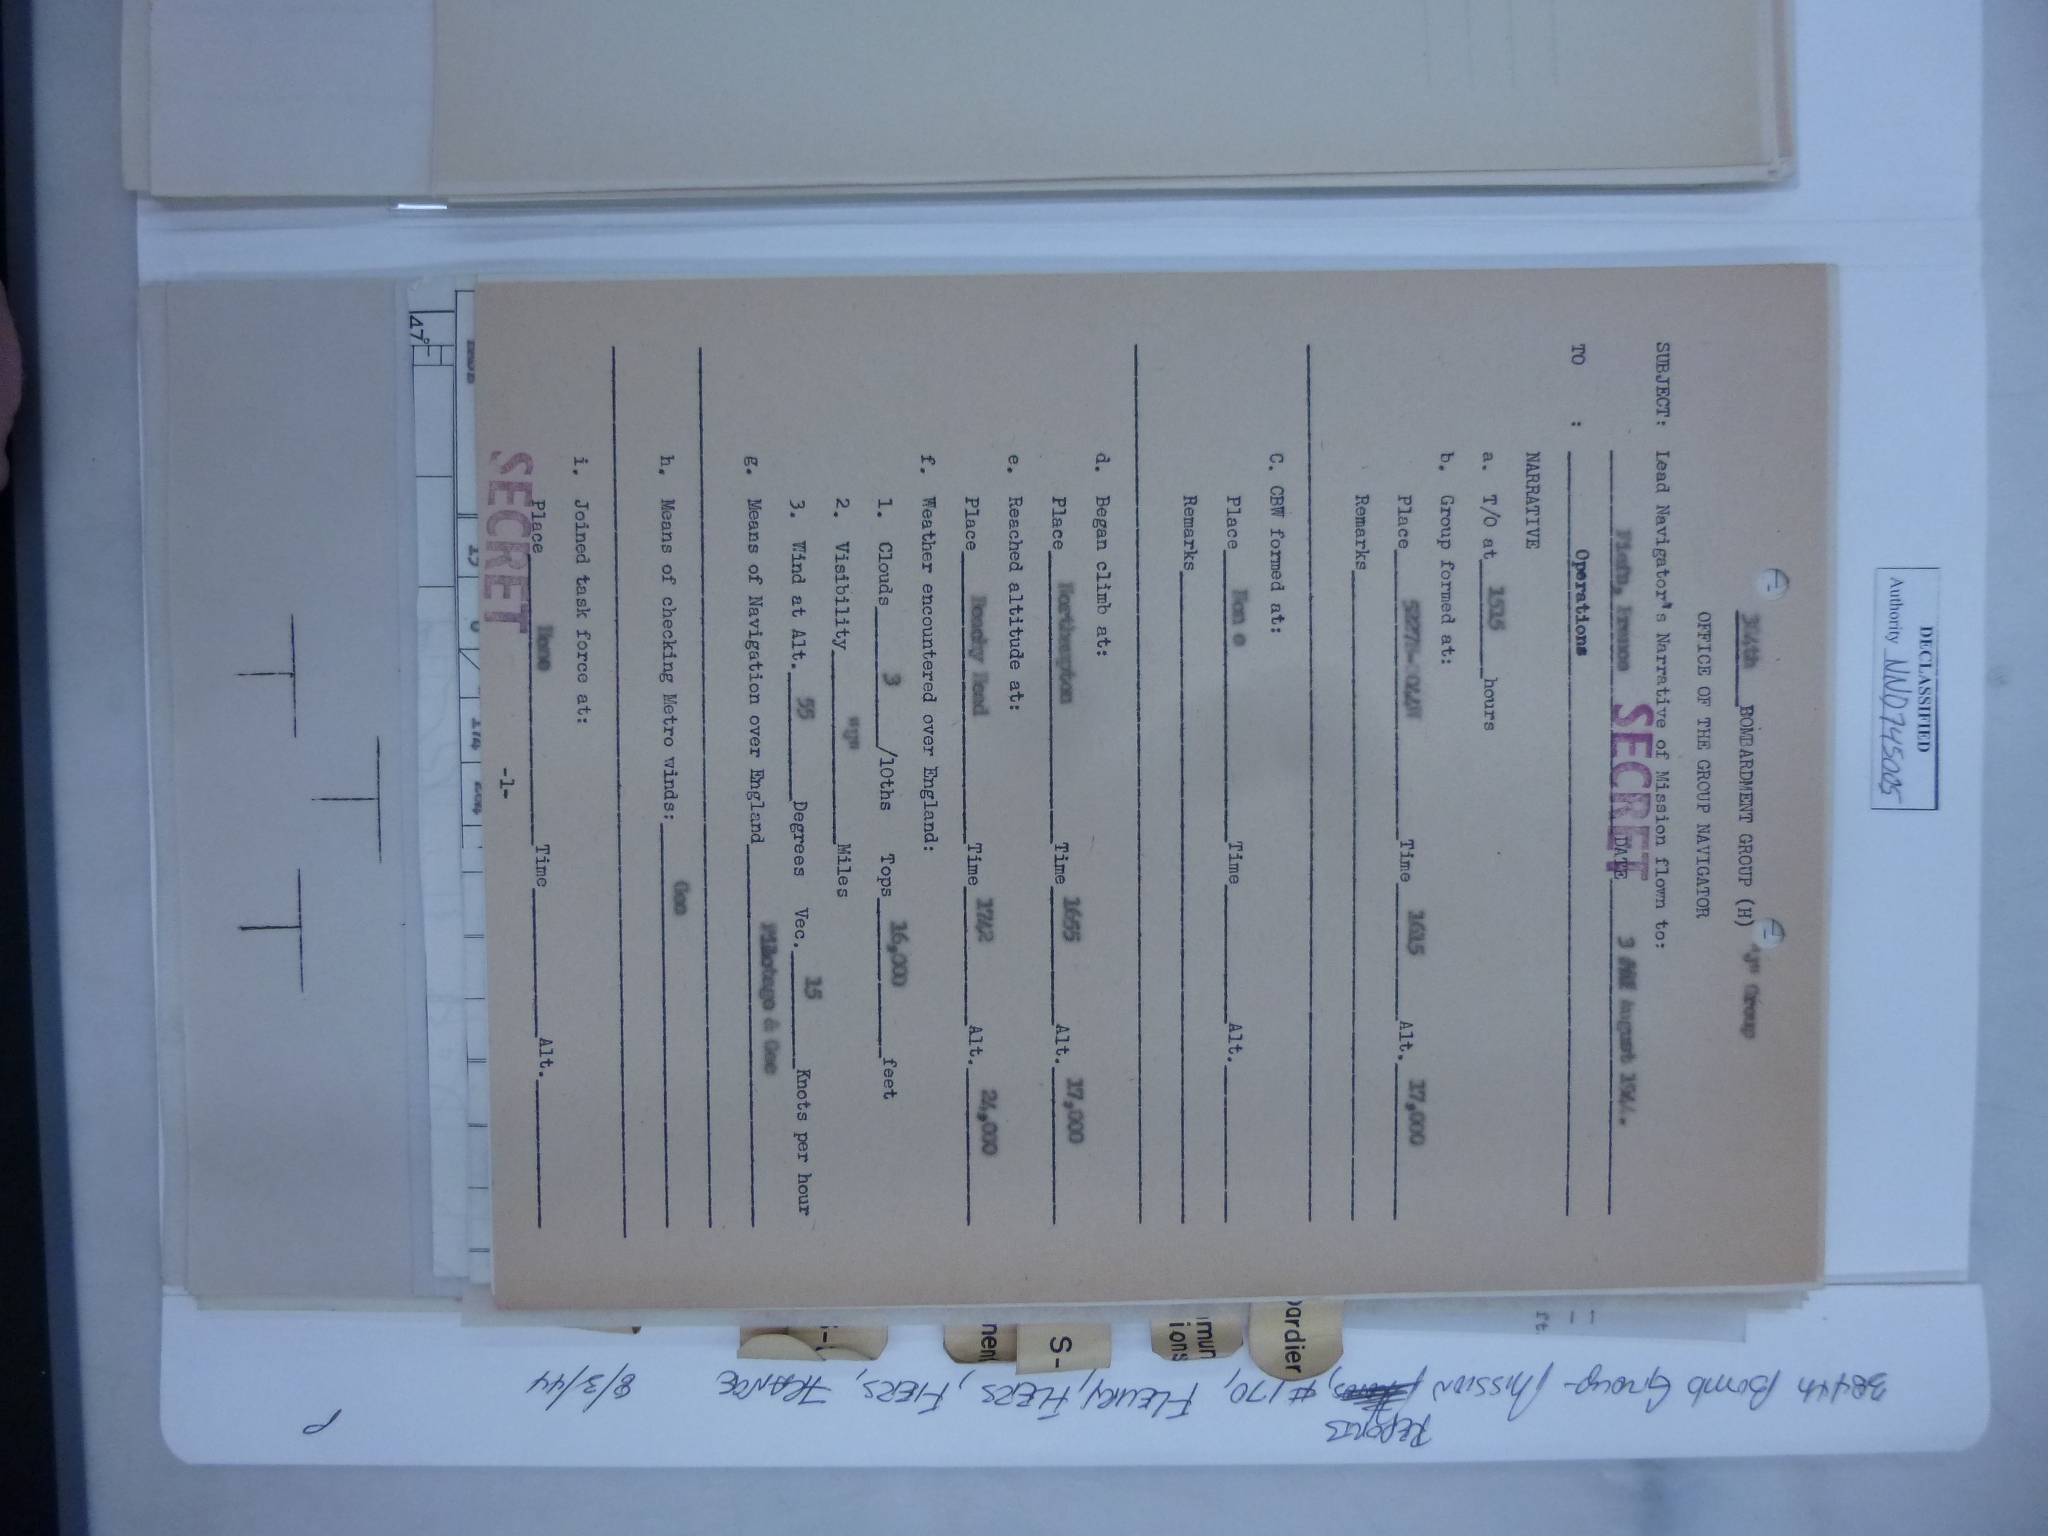 DECLASSIFIED
Authority NND745005
384th BOMBARDMENT GROUP (H) "J" Group
OFFICE OF THE GROUP NAVIGATOR
SUBJECT: Lead Navigator's Narrative of Mission flown to:
France SECRET DATE 3 August 1944.
TO : Operations
NARRATIVE
a. T/O at 1515 hours
b. Group formed at:
Place Time 1615 Alt. 17,000
Remarks
C. CBW formed at:
Place Non e Time Alt.
Remarks
d. Began climb at:
Place Northampton Time 1655 Alt. 17,000
e. Reached altitude at:
Place Beachy Head Time 1742 Alt. 24,000
f. Weather encountered over England:
1. Clouds 3 /10ths Tops 16,000 feet
2. Visibility Miles
3. Wind at Alt. 55 Degrees Vec. 15 Knots per hour
g. Means of Navigation over England Pilotage & Gee
h. Means of checking Metro winds: Gee
i. Joined task force at:
Place None Time Alt.
SECRET
-1-
47°
ardier
mun
ions
S-
nen
ft
384th Bomb Group - Mission Reports, #170, Fleury, FLERS, FIERS, FRANCE 8/3/44
P